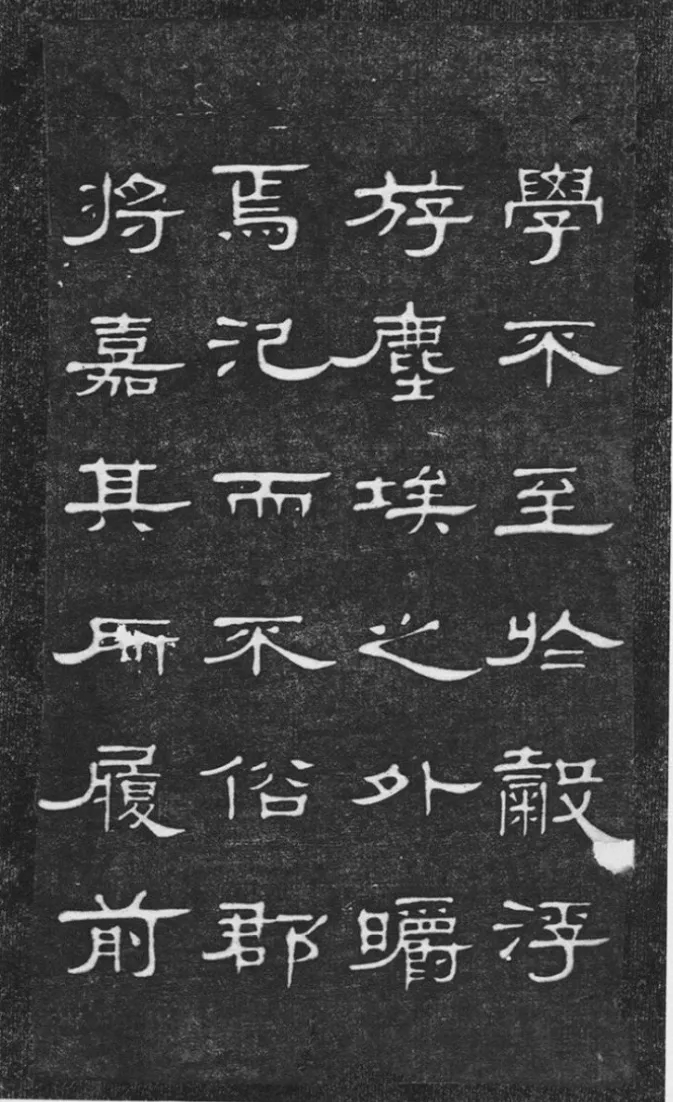 學不至於穀浮
游塵埃之外皭
焉汜而不俗郡
將嘉其所履前